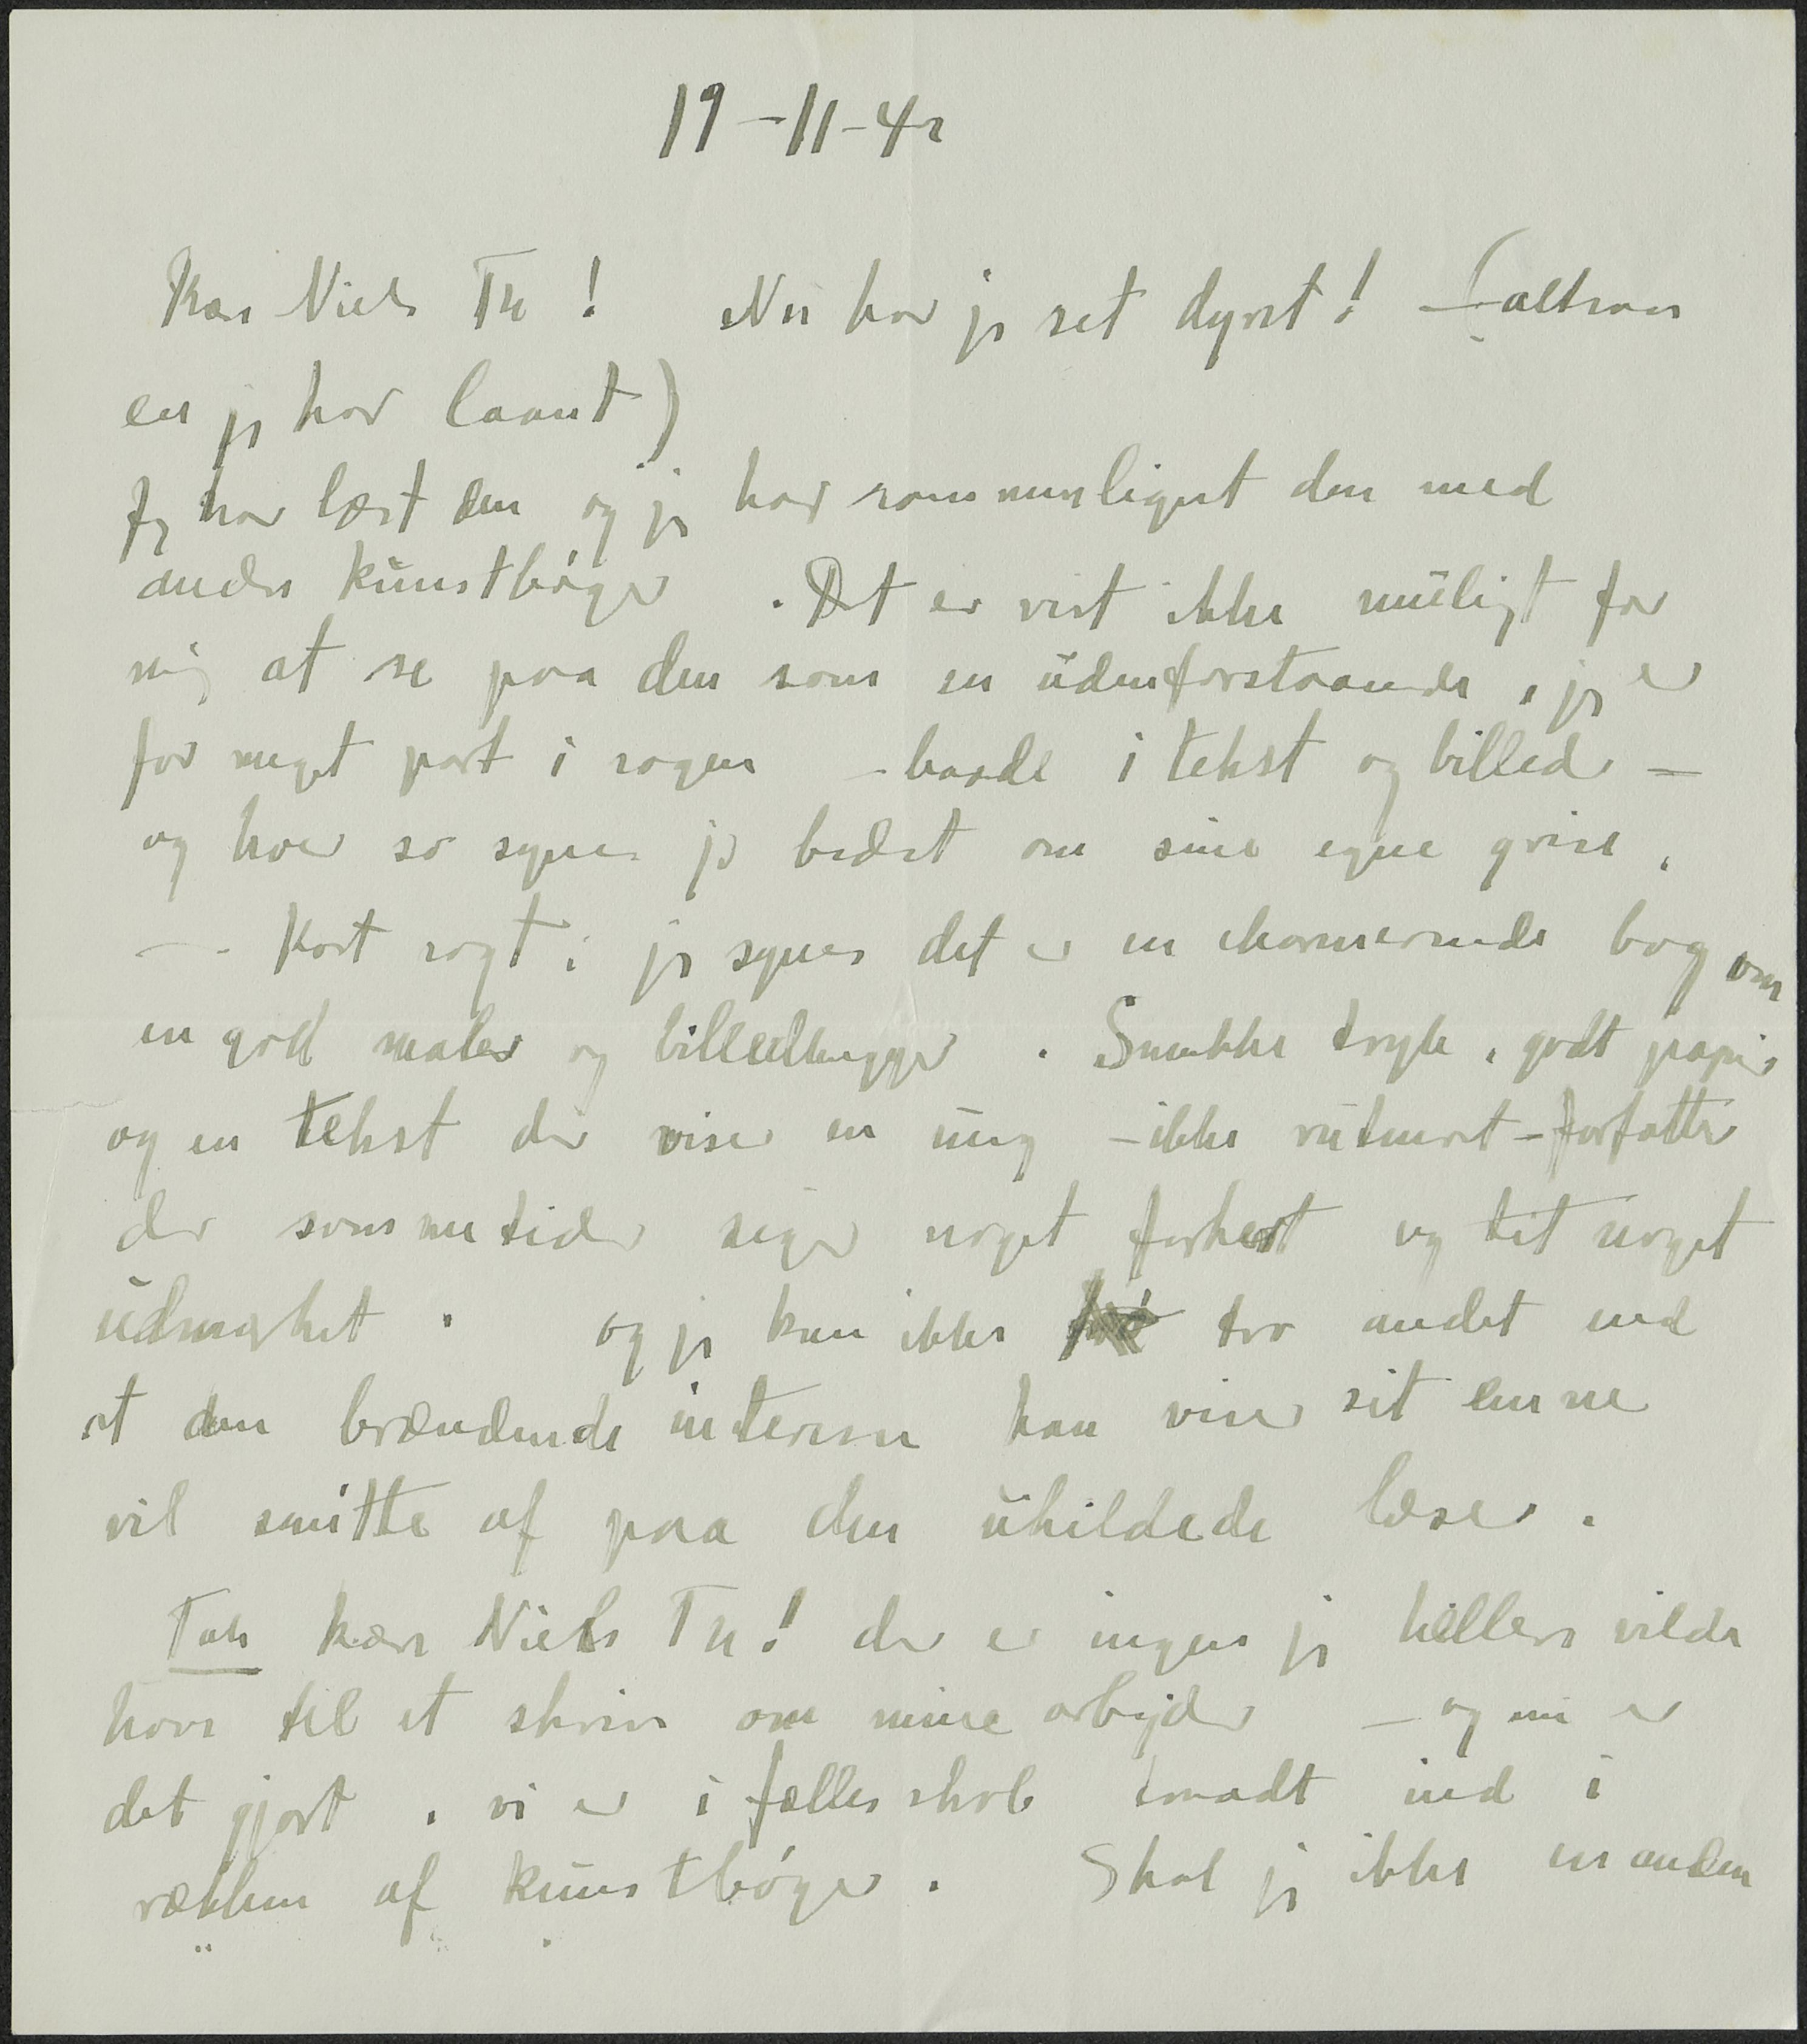 19-11-42
Kære Niels Th! Nu har jeg set dyret! – (altsaa
en jeg har laant)
Jeg har læst den og jeg har sammenlignet den med
andre kunstbøger. Det er vist ikke muligt for
mig at se paa den som en udenforstaaende, jeg er
for meget part i sagen – baade i tekst og billeder –
og hver so synes jo bedst om sine egne grise.
– Kort sagt: jeg synes det er en charmerende bog om
en god maler og billedhugger. Smukke tryk, godt papir
og en tekst der viser en ung – ikke rutineret – forfatter
der somme tider siger noget forkert og tit noget
udmærket. og jeg kan ikke tro andet end
at den brændende interesse han viser sit emne
vil smitte af paa den uhildede læser.
Tak kære Niels Th! der er ingen jeg hellere vilde
have til at skrive om mine arbejder – og nu er
det gjort. vi er i fællesskab traadt ind i
rækken af kunstbøger. Skal jeg ikke en anden